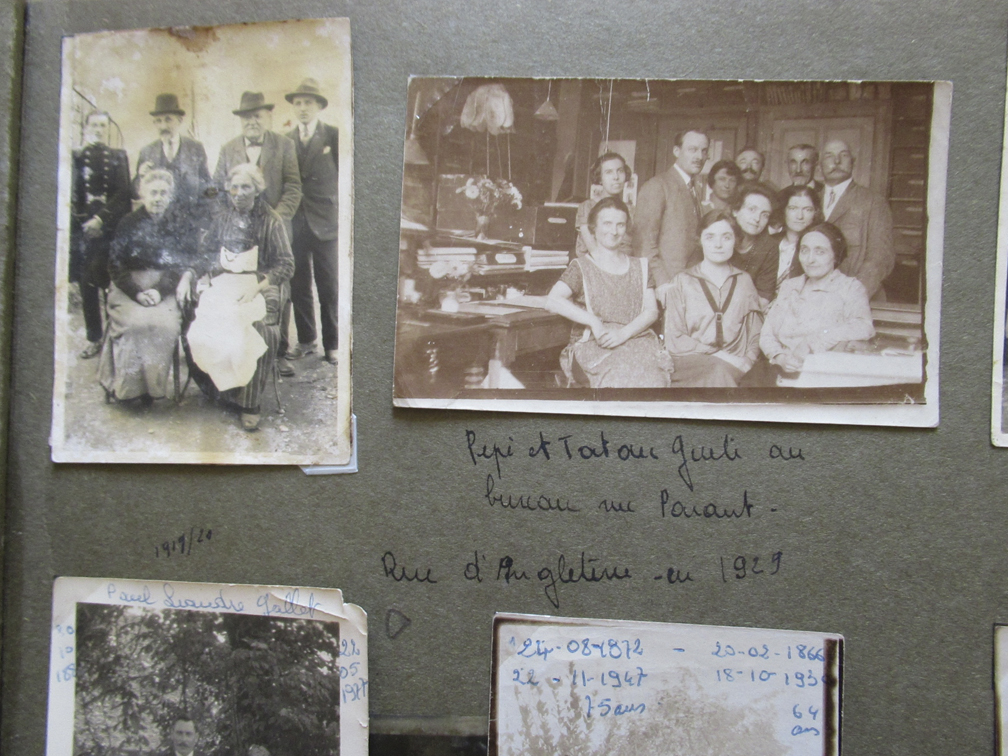 Pepi et Tatan au
bureau rue Parant -
Rue d'Angleterre - en 1929
1919/20
Paul Leandre Gallet
30
10
22
05
1977
24-08-1872 - 20-02-1866
22-11-1947 18-10-193
75 ans 64
ans